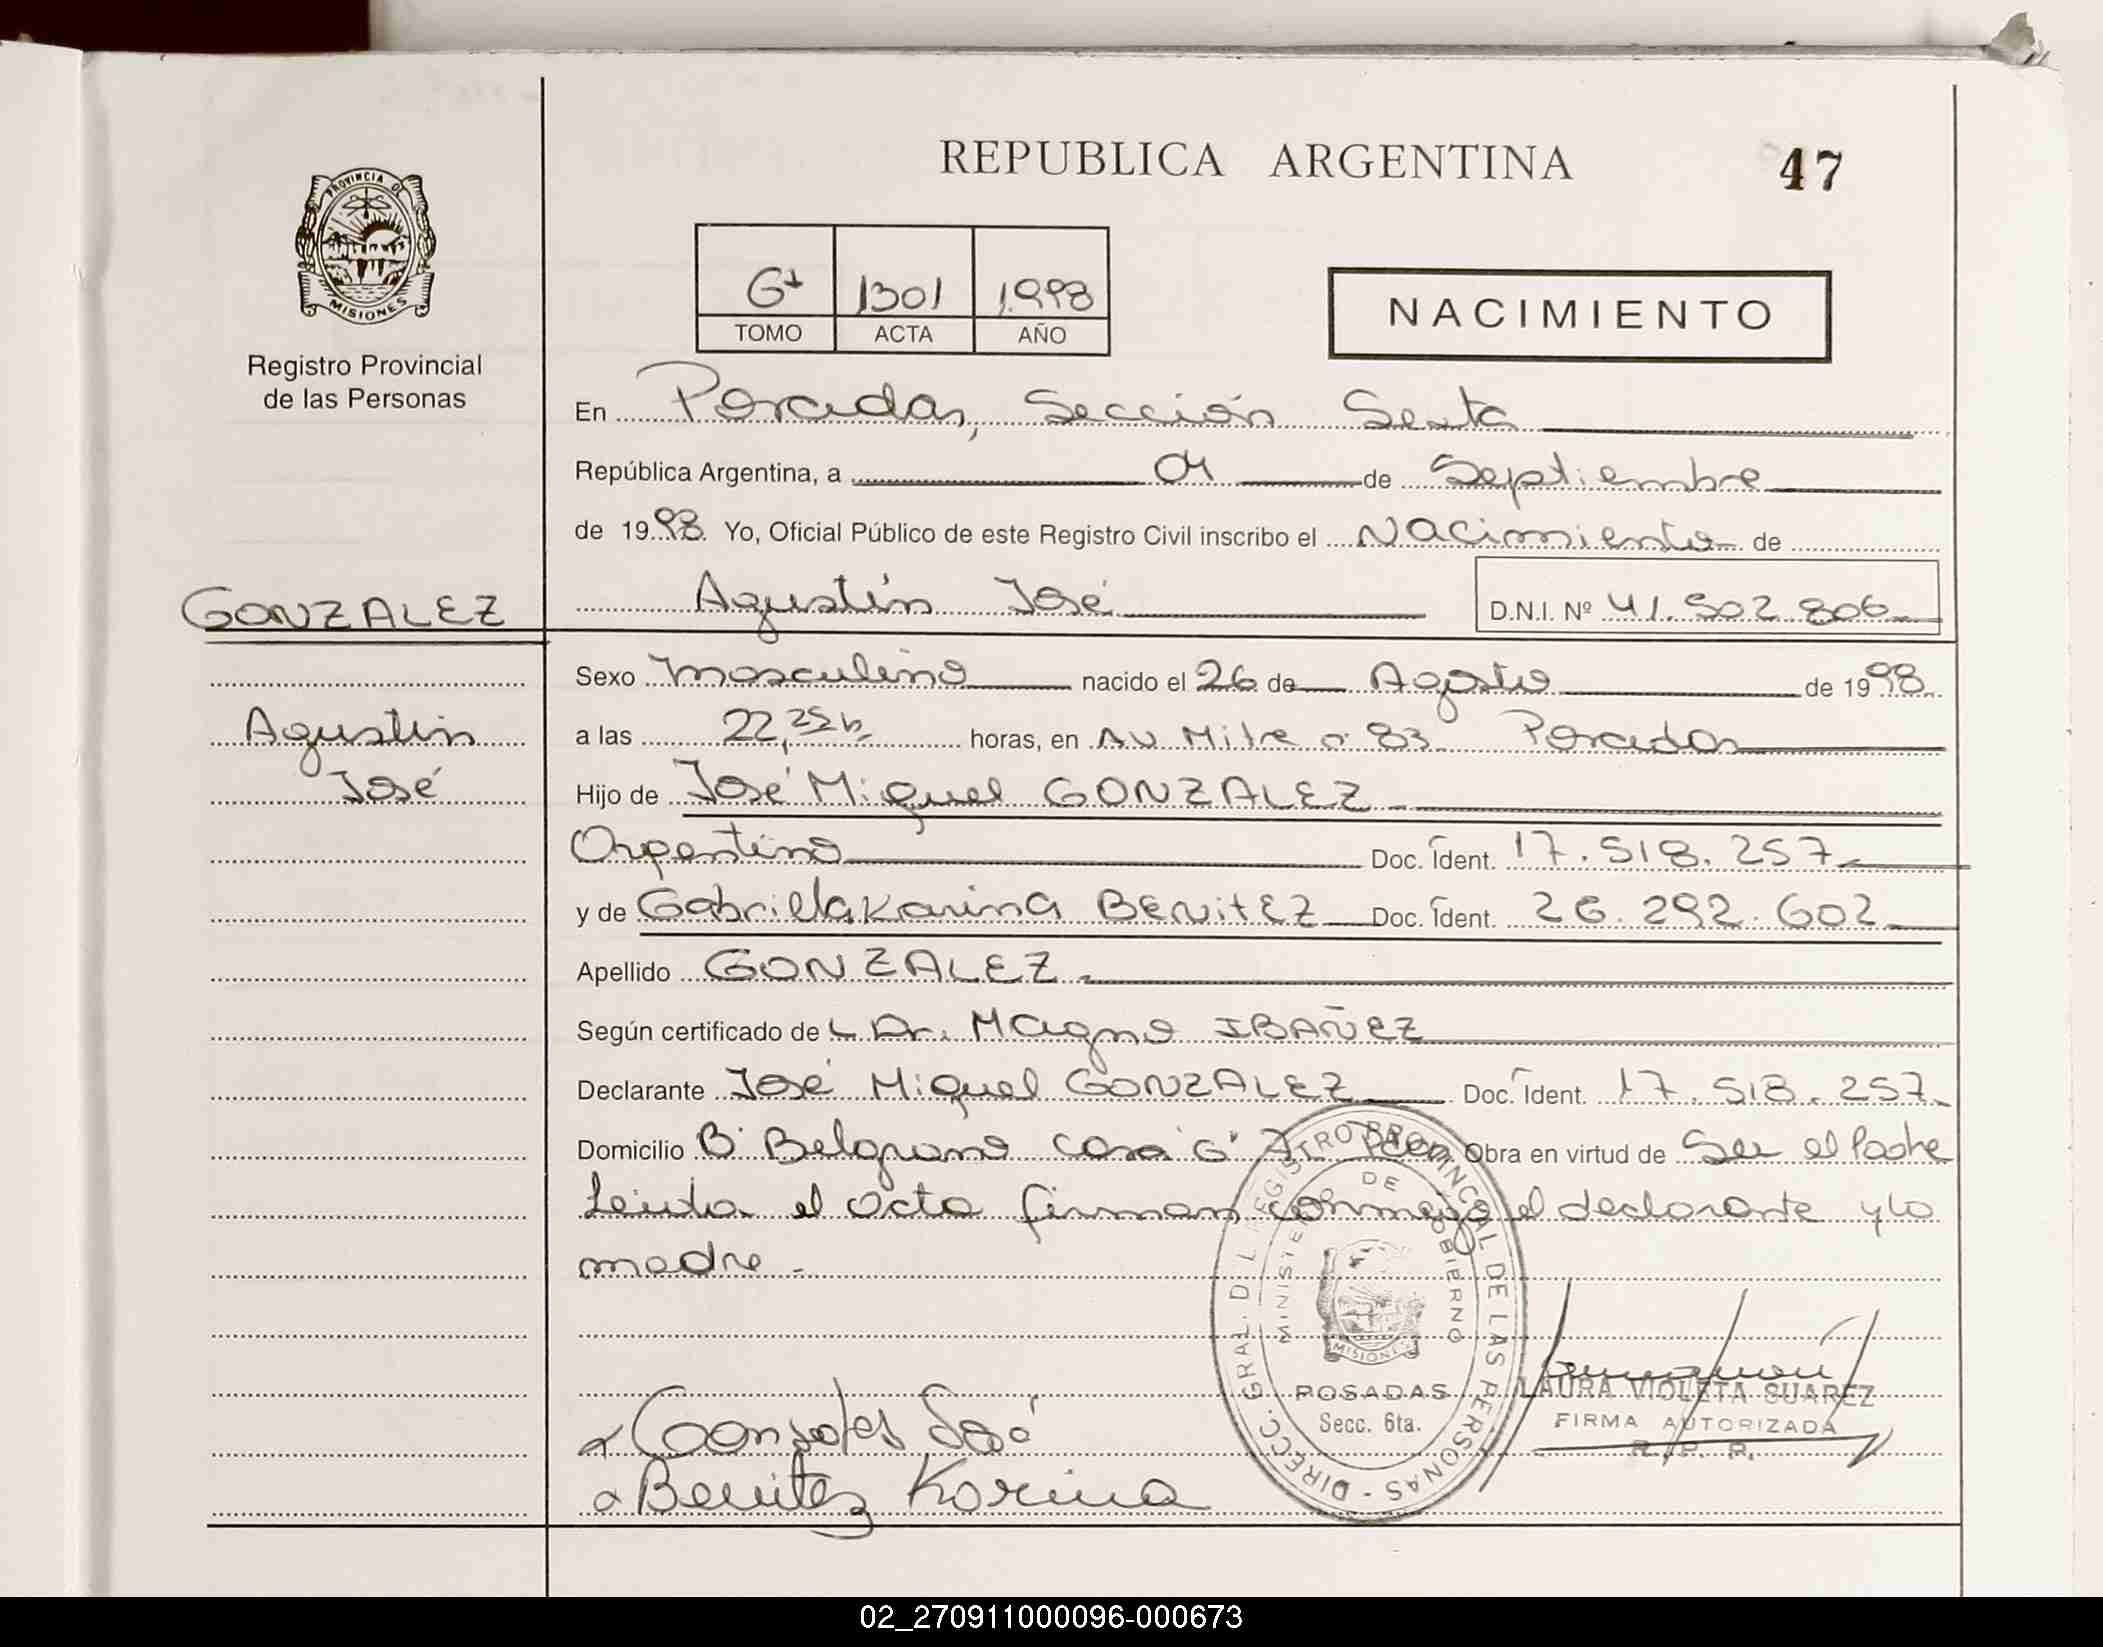 REPUBLICA ARGENTINA
47
PROVINCIA DE
MISIONES
Registro Provincial
de las Personas
6ª 1301 1.998
TOMO ACTA AÑO
NACIMIENTO
En Posadas, Sección Sexta
República Argentina, a 04 de Septiembre
de 1998 Yo, Oficial Público de este Registro Civil inscribo el Nacimiento de
GONZALEZ
Agustín José D.N.I. Nº 41.502.806
Sexo Masculino nacido el 26 de Agosto de 1998
Agustín
a las 22,25 h. horas, en Av Mitre nº 83 Posadas
José
Hijo de José Miguel GONZALEZ
Argentino Doc. Ident. 17.518.257
y de Gabriela Karina BENitEZ Doc. Ident. 26.292.602
Apellido GONZALEZ
Según certificado de L Dr. Magno IBAÑEZ
Declarante José Miguel GONZALEZ Doc. Ident. 17.518.257
Domicilio Bº Belgrano casa 6 Obra en virtud de Ser el Padre
Leída el acta firman conmigo el declarante y la
madre.-
DIRECC. GRAL. DEL REGISTRO PROVINCIAL DE LAS PERSONAS
MINISTERIO DE GOBIERNO
MISIONES
POSADAS
Secc. 6ta.
LAURA VIOLETA SUAREZ
FIRMA AUTORIZADA
R. P. P.
Gonzales José
Benitez Karina
02_270911000096-000673